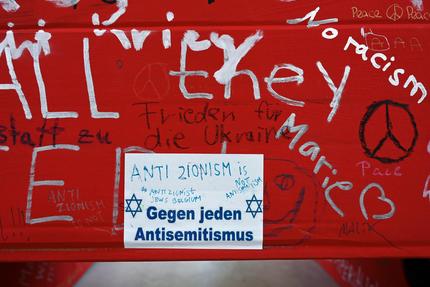 Peace Peace
No racism
Krieg
ALL they
Frieden für
die Ukraine
statt zu
Marie
Pace
ANTI ZIONISM is
NOT
ANTISEMITISM
ANTIZIONIST
JEWS BELGIUM
Gegen jeden
Antisemitismus
ANTI
ZIONISM
IS NOT